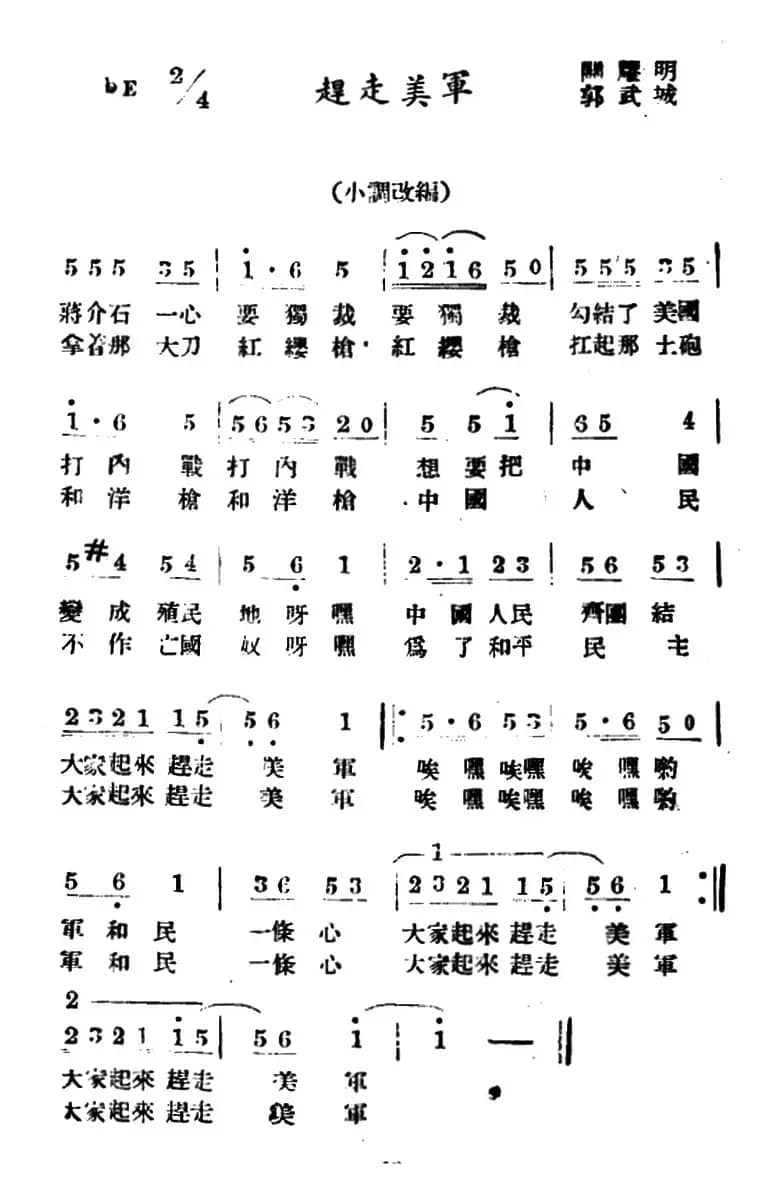 ♭E 2/4 趕走美軍 關耀明
郭武城
(小調改編)
5 5 5 3 5 | i · 6 5 | i 2 i 6 5 0 | 5 5 5 3 5 |
蔣介石一心要獨裁要獨裁 勾結了美國
拿着那大刀紅纓槍·紅纓槍 扛起那土砲
i · 6 5 | 5 6 5 3 2 0 | 5 5 i | 6 5 4 |
打內戰打內戰想要把中國
和洋槍和洋槍中國人民
5 #4 5 4 | 5 6 1 | 2 · 1 2 3 | 5 6 5 3 |
變成殖民地呀嘿中國人民齊團結
不作亡國奴呀嘿爲了和平民主
2 3 2 1 1 5 | 5 6 1 |: 5 · 6 5 3 | 5 · 6 5 0 |
大家起來趕走美軍 唉嘿唉嘿唉嘿喲
大家起來趕走美軍 唉嘿唉嘿唉嘿喲
1
5 6 1 | 3 6 5 3 | 2 3 2 1 1 5 | 5 6 1 :||
軍和民一條心大家起來趕走美軍
軍和民一條心大家起來趕走美軍
2
2 3 2 1 i 5 | 5 6 i | i — ||
大家起來趕走美軍
大家起來趕走美軍